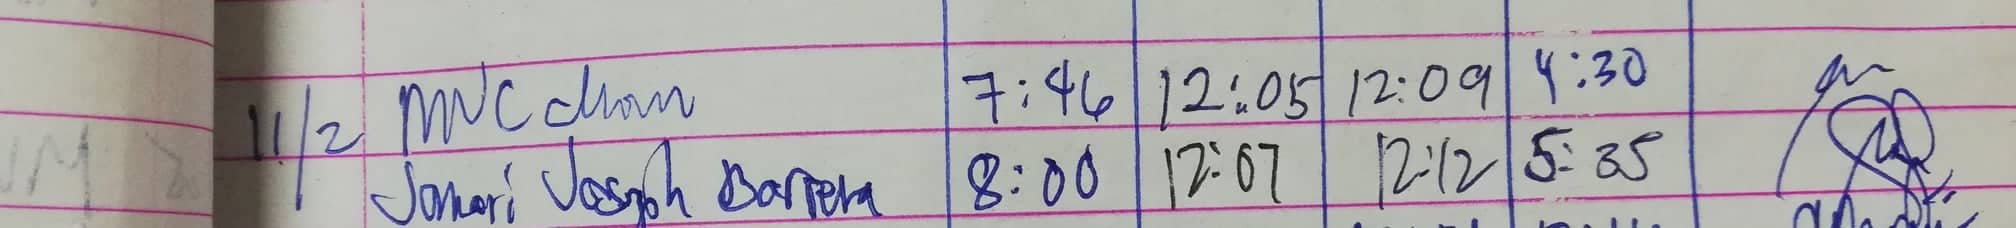 11/2 MNC chan 7:46 12:05 12:09 4:30
Jomari Joseph Barrera 8:00 12:07 12:12 5:35